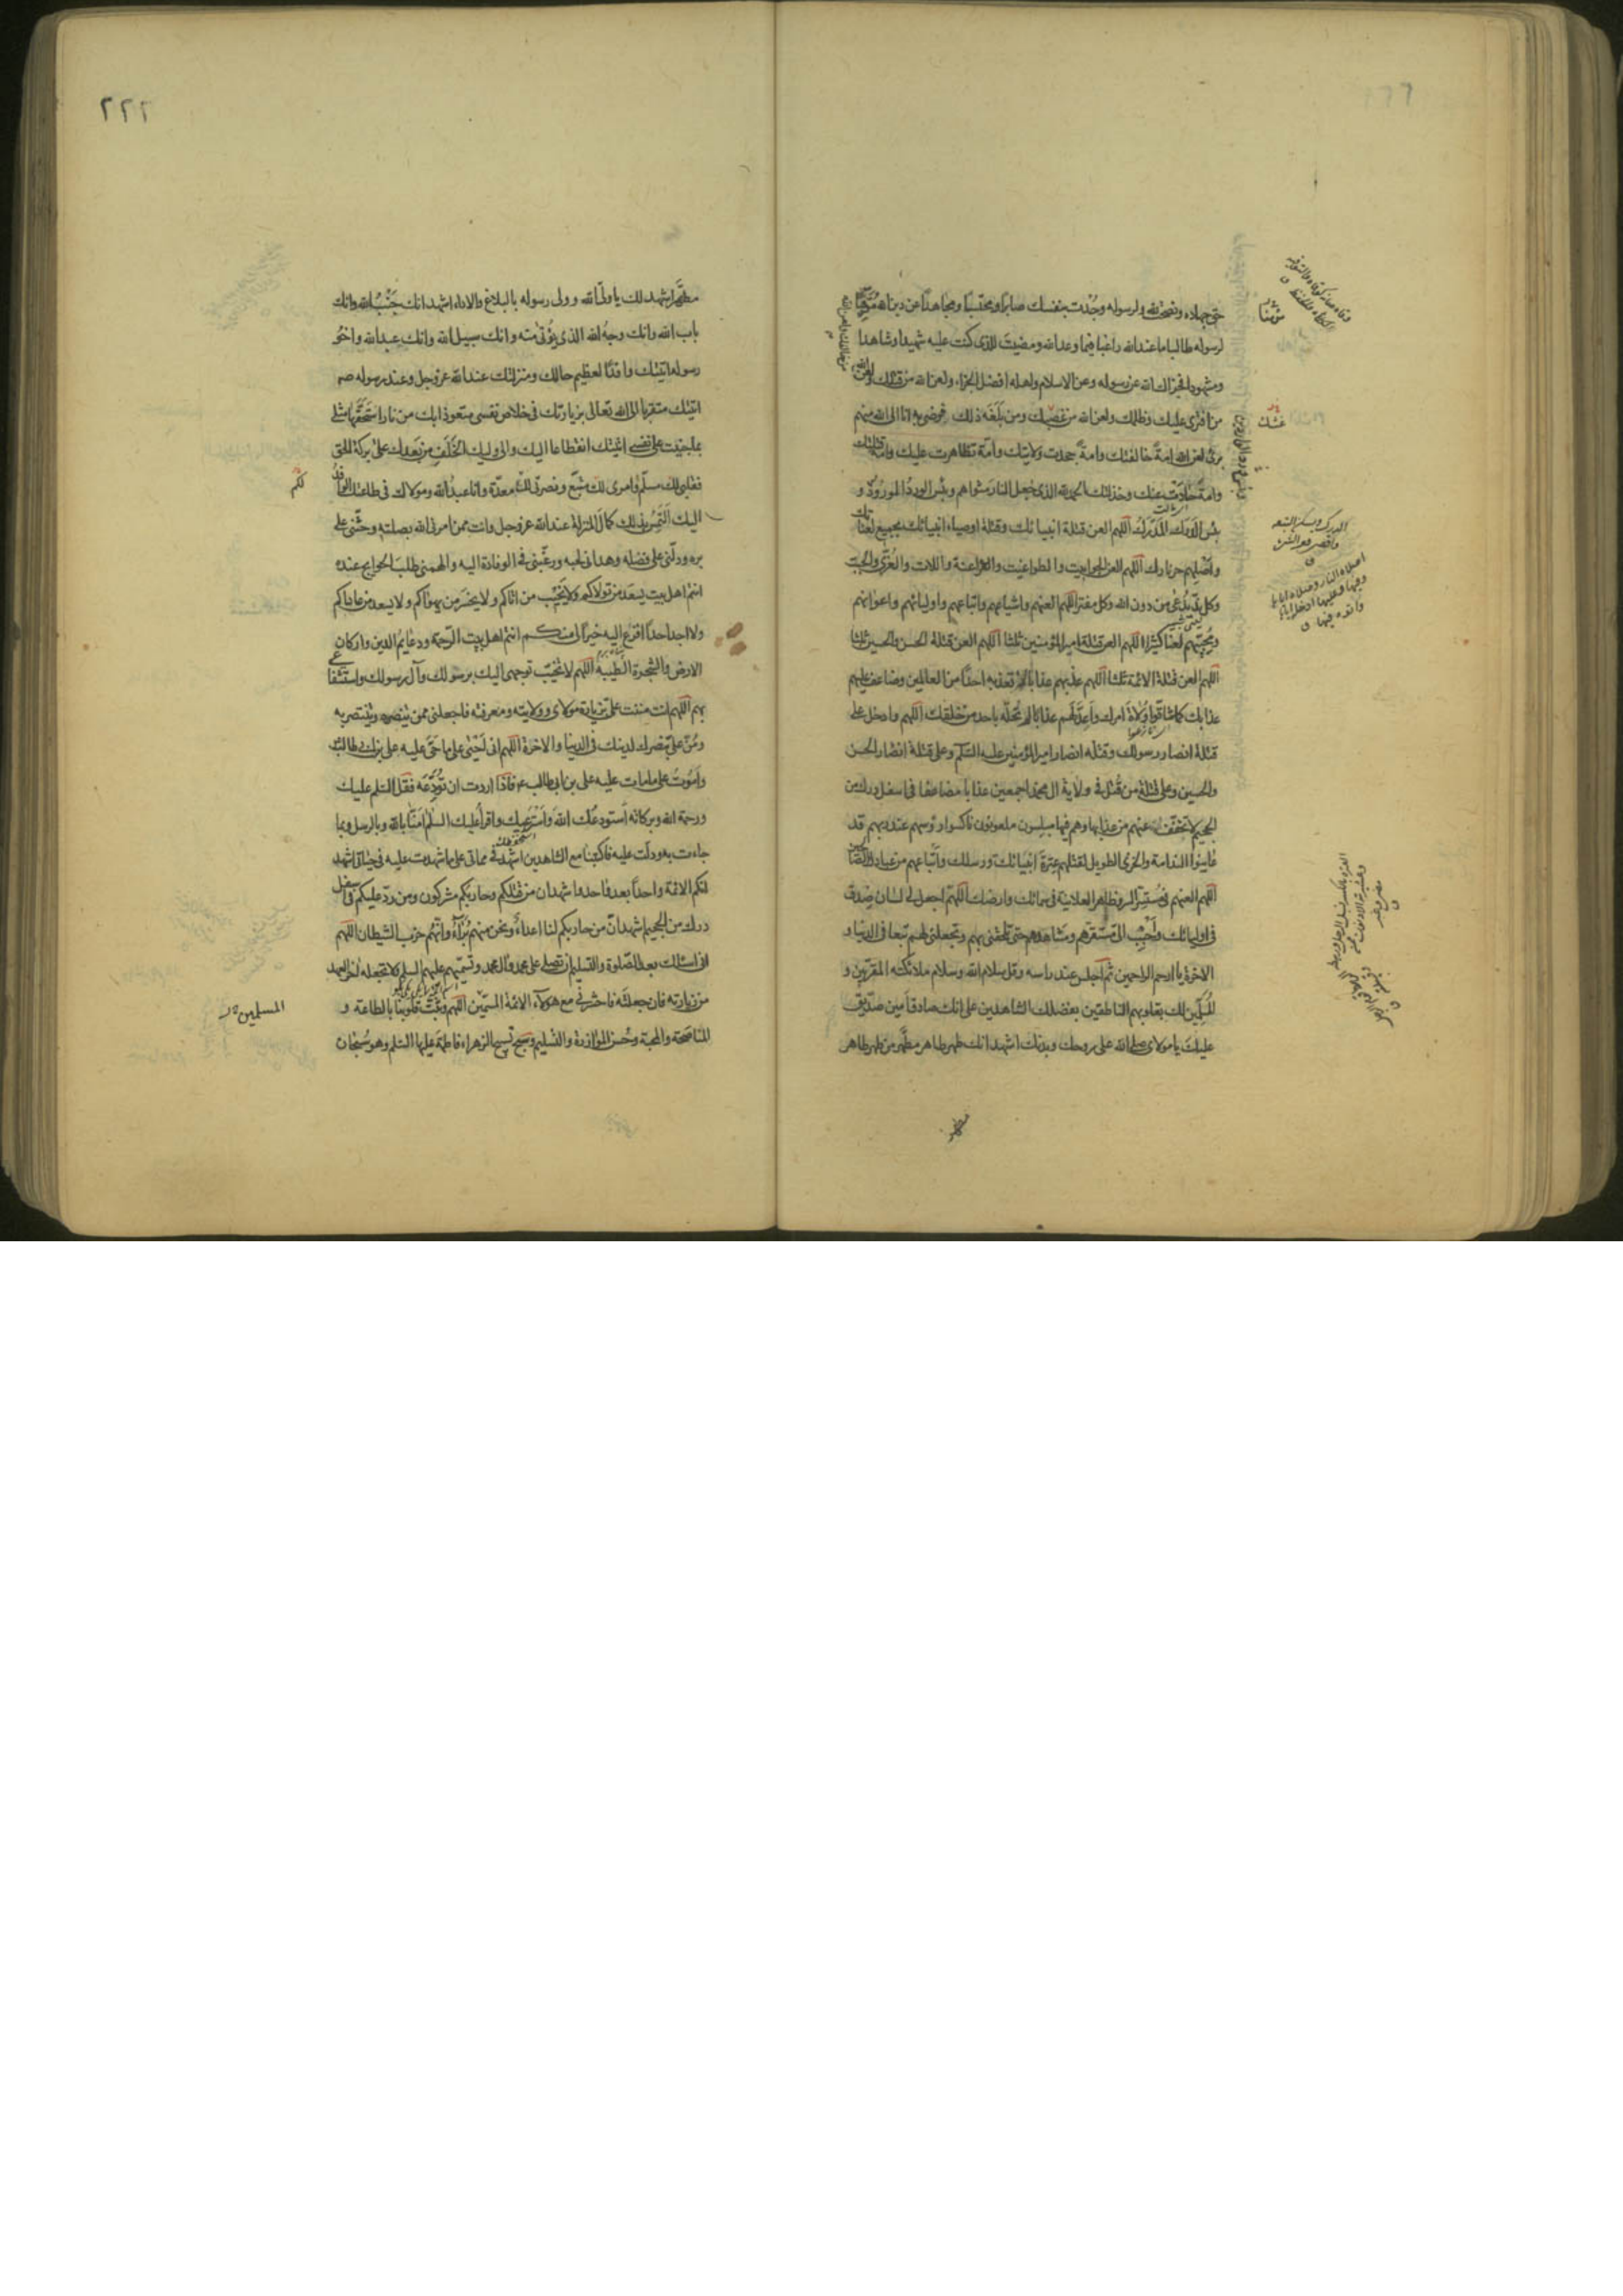 حق جهاده ونصحت لله ولرسوله وجدت بنفسك صابرا ومحتسبا ومجاهدا عن دين الله موقيا
لرسوله طالبا ما عند الله راغبا فيما وعد الله ومضيت للذى كنت عليه شهيدا وشاهدا
ومشهودا فجزاك الله عن رسوله وعن الاسلام واهله افضل الجزاء ولعن الله من قتلك ولعن الله
من افترى عليك وظلمك ولعن الله من غصبك ومن بلغه ذلك فرضى به انا الى الله منهم
برئ لعن الله امة خالفتك وامة جحدت ولايتك وامة تظاهرت عليك وامة قتلتك
وامة حادت عنك وخذلتك الحمد لله الذى جعل النار مثواهم وبئس الورد المورود و
بئس الدرك المدرك اللهم العن قتلة انبيائك وقتلة اوصياء انبيائك بجميع لعناتك
واصلهم حر نارك اللهم العن الجوابيت والطواغيت والفراعنة واللات والعزى والجبت
وكل ند يدعى من دون الله وكل مفتر اللهم العنهم واشياعهم واتباعهم واوليائهم واعوانهم
ومحبيهم لعنا كثيرا اللهم العن قتلة امير المؤمنين ثلثا اللهم العن قتلة الحسن والحسين ثلثا
اللهم العن قتلة الائمة ثلثا اللهم عذبهم عذابا لا تعذبه احدا من العالمين وضاعف عليهم
عذابك كما شاقوا ولاة امرك واعد لهم عذابا لم تحله باحد من خلقك اللهم وادخل على
قتلة انصار رسولك وقتلة انصار امير المؤمنين عليه السلام وعلى قتلة انصار الحسن
والحسين وعلى قتلة من قتل فى ولاية ال محمد اجمعين عذابا مضاعفا فى اسفل درك من
الجحيم لا تخفف عنهم من عذابها وهم فيها مبلسون ملعونون ناكسوا رؤسهم عند ربهم قد
عاينوا الندامة والخزى الطويل لقتلهم عترة انبيائك ورسلك واتباعهم من عبادك الصالحين
اللهم العنهم فى مستسر السر وظاهر العلانية فى سمائك وارضك اللهم اجعل لى لسان صدق
فى اوليائك وحبب الى مستقرهم ومشاهدهم حتى تلحقنى بهم وتجعلنى لهم تبعا فى الدنيا و
الاخرة يا ارحم الراحمين ثم اجلس عند راسه وقل سلام الله وسلام ملائكته المقربين و
المسلمين لك بقلوبهم الناطقين بفضلك الشاهدين على انك صادق امين صديق
عليك يا مولاى صلى الله على روحك وبدنك اشهد انك طهر طاهر مطهر من طهر طاهر
مطهر
غشك
مطهر اشهد لك يا ولى الله وولى رسوله بالبلاغ والاداء اشهد انك جنب الله وانك
باب الله وانك وجه الله الذى يؤتى منه وانك سبيل الله وانك عبد الله واخو
رسوله اتيتك وافدا لعظيم حالك ومنزلتك عند الله عز وجل وعند رسوله صم
اتيتك متقربا الى الله تعالى بزيارتك فى خلاص نفسى متعوذا بك من نار استحقها مثلى
بما جنيت على نفسى اتيتك انقطاعا اليك والى وليك الخلف من بعدك على بركة الحق
فقلبى لك مسلم وامرى لك متبع ونصرتى لك معدة وانا عبد الله ومولاك فى طاعتك الوافد
اليك التمس بذلك كمال المنزلة عند الله عز وجل وانت ممن امرنى الله بصلته وحثنى على
بره ودلنى على فضله وهدانى لحبه ورغبنى فى الوفادة اليه والهمنى طلب الحوايج عنده
انتم اهل بيت يسعد من تولاكم ولا يخيب من اتاكم ولا يخسر من يهواكم ولا يسعد من عاداكم
ولا اجد احدا افزع اليه خيرا لى منكم انتم اهل بيت الرحمة ودعايم الدين واركان
الارض والشجرة الطيبة اللهم لا تخيب توجهى اليك برسولك وآل رسولك واستشفاعى
بهم اللهم انت مننت على بزيارة مولاى وولايته ومعرفته فاجعلنى ممن ينصره وينتصر به
ومن على بنصرك لدينك فى الدنيا والاخرة اللهم انى احيى على ما حى عليه على بن ابى طالب
واموت على ما مات عليه على بن ابى طالب ع فاذا اردت ان تودعه فقل السلم عليك
ورحمة الله وبركاته استودعك الله واسترعيك واقرأ عليك السلم امنا بالله وبالرسل وبما
جاءت به ودلت عليه فاكتبنا مع الشاهدين اشهد فى مماتى على ما شهدت عليه فى حياتى اشهد
انكم الائمة واحدا بعد واحد واشهد ان من قتلكم وحاربكم مشركون ومن رد عليكم فى اسفل
درك من الجحيم اشهد ان من حاربكم لنا اعداء ونحن منهم برآء وانهم حزب الشيطان اللهم
انى اسئلك بعد الصلوة والتسليم ان تصلى على محمد وال محمد وتسميهم عليهم السلم ولا تجعله اخر العهد
من زيارته فان جعلته فاحشرنى مع هؤلاء الائمة المسمين اللهم وثبت قلوبنا بالطاعة و
المناصحة والمحبة وحسن الموازرة والتسليم وسبح تسبيح الزهراء فاطمة عليها السلم وهو سبحان
لكم
المسلمين
٢٢٢